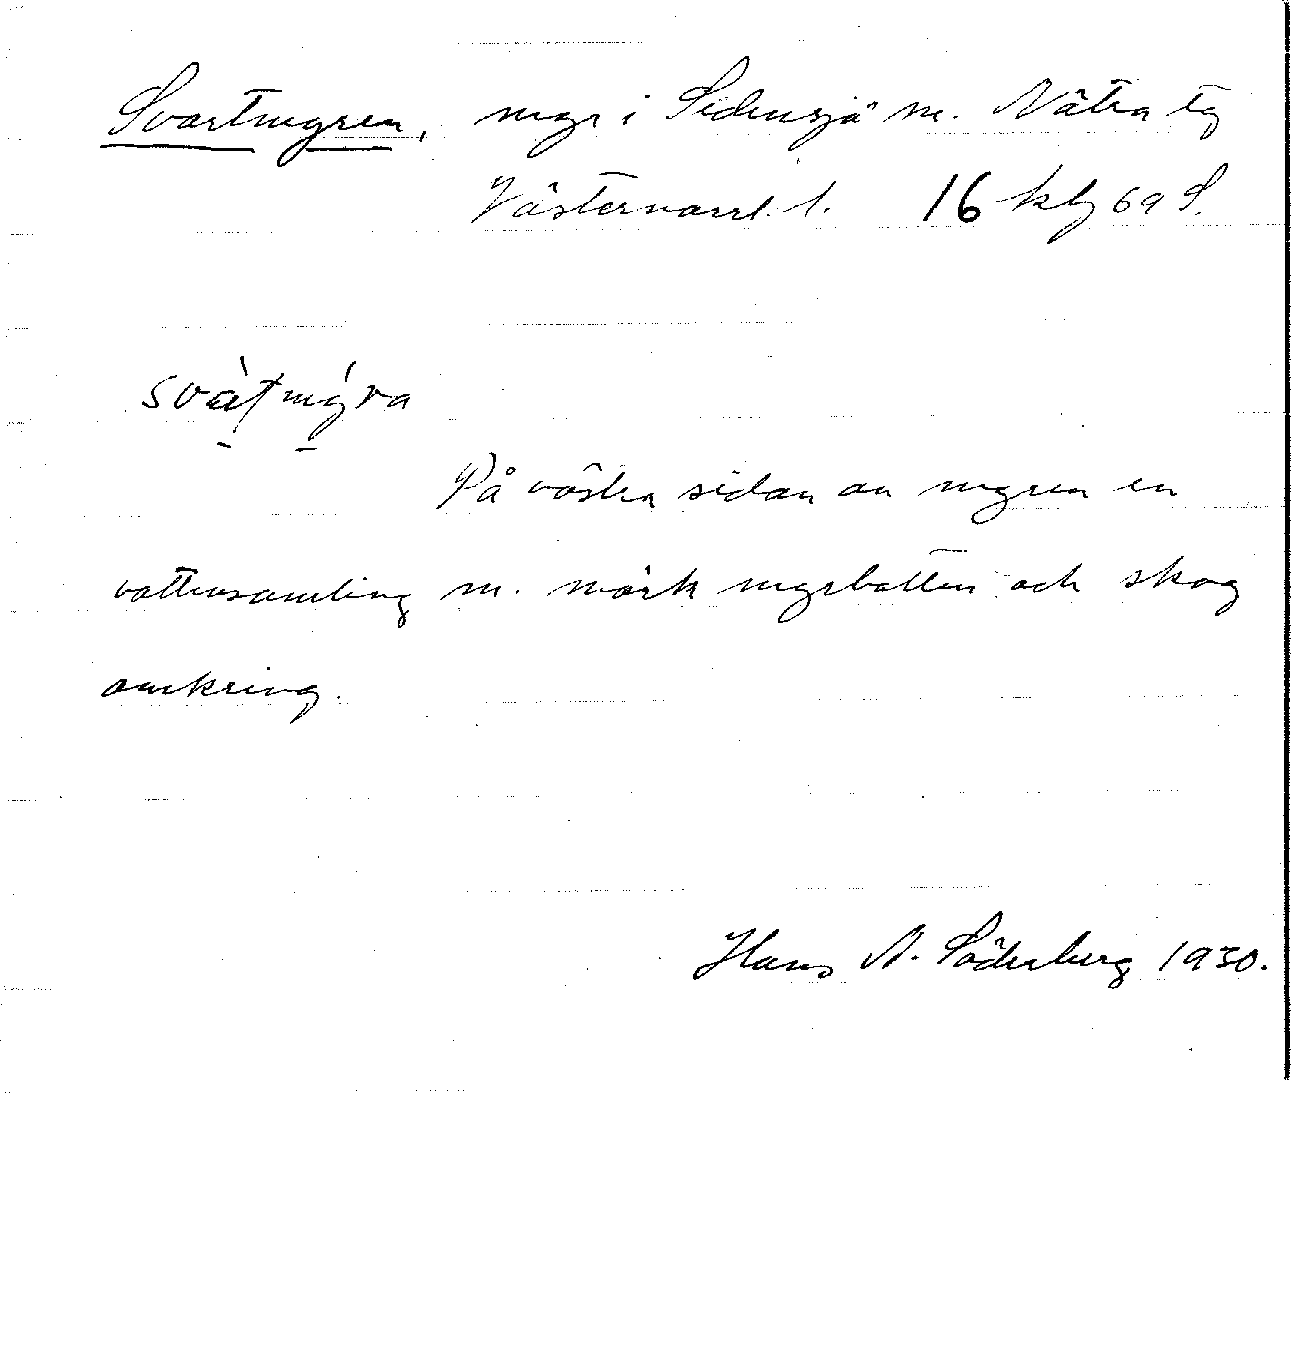 Svartmyren, myr i Sidensjö sn. Nätra tg
Västernorrl. l. 16 kbg 69 S.
svàʈmýra
På västra sidan av myren en
vattensamling m. mörk myrbotten och skog
omkring.
Hans N. Söderberg 1930.